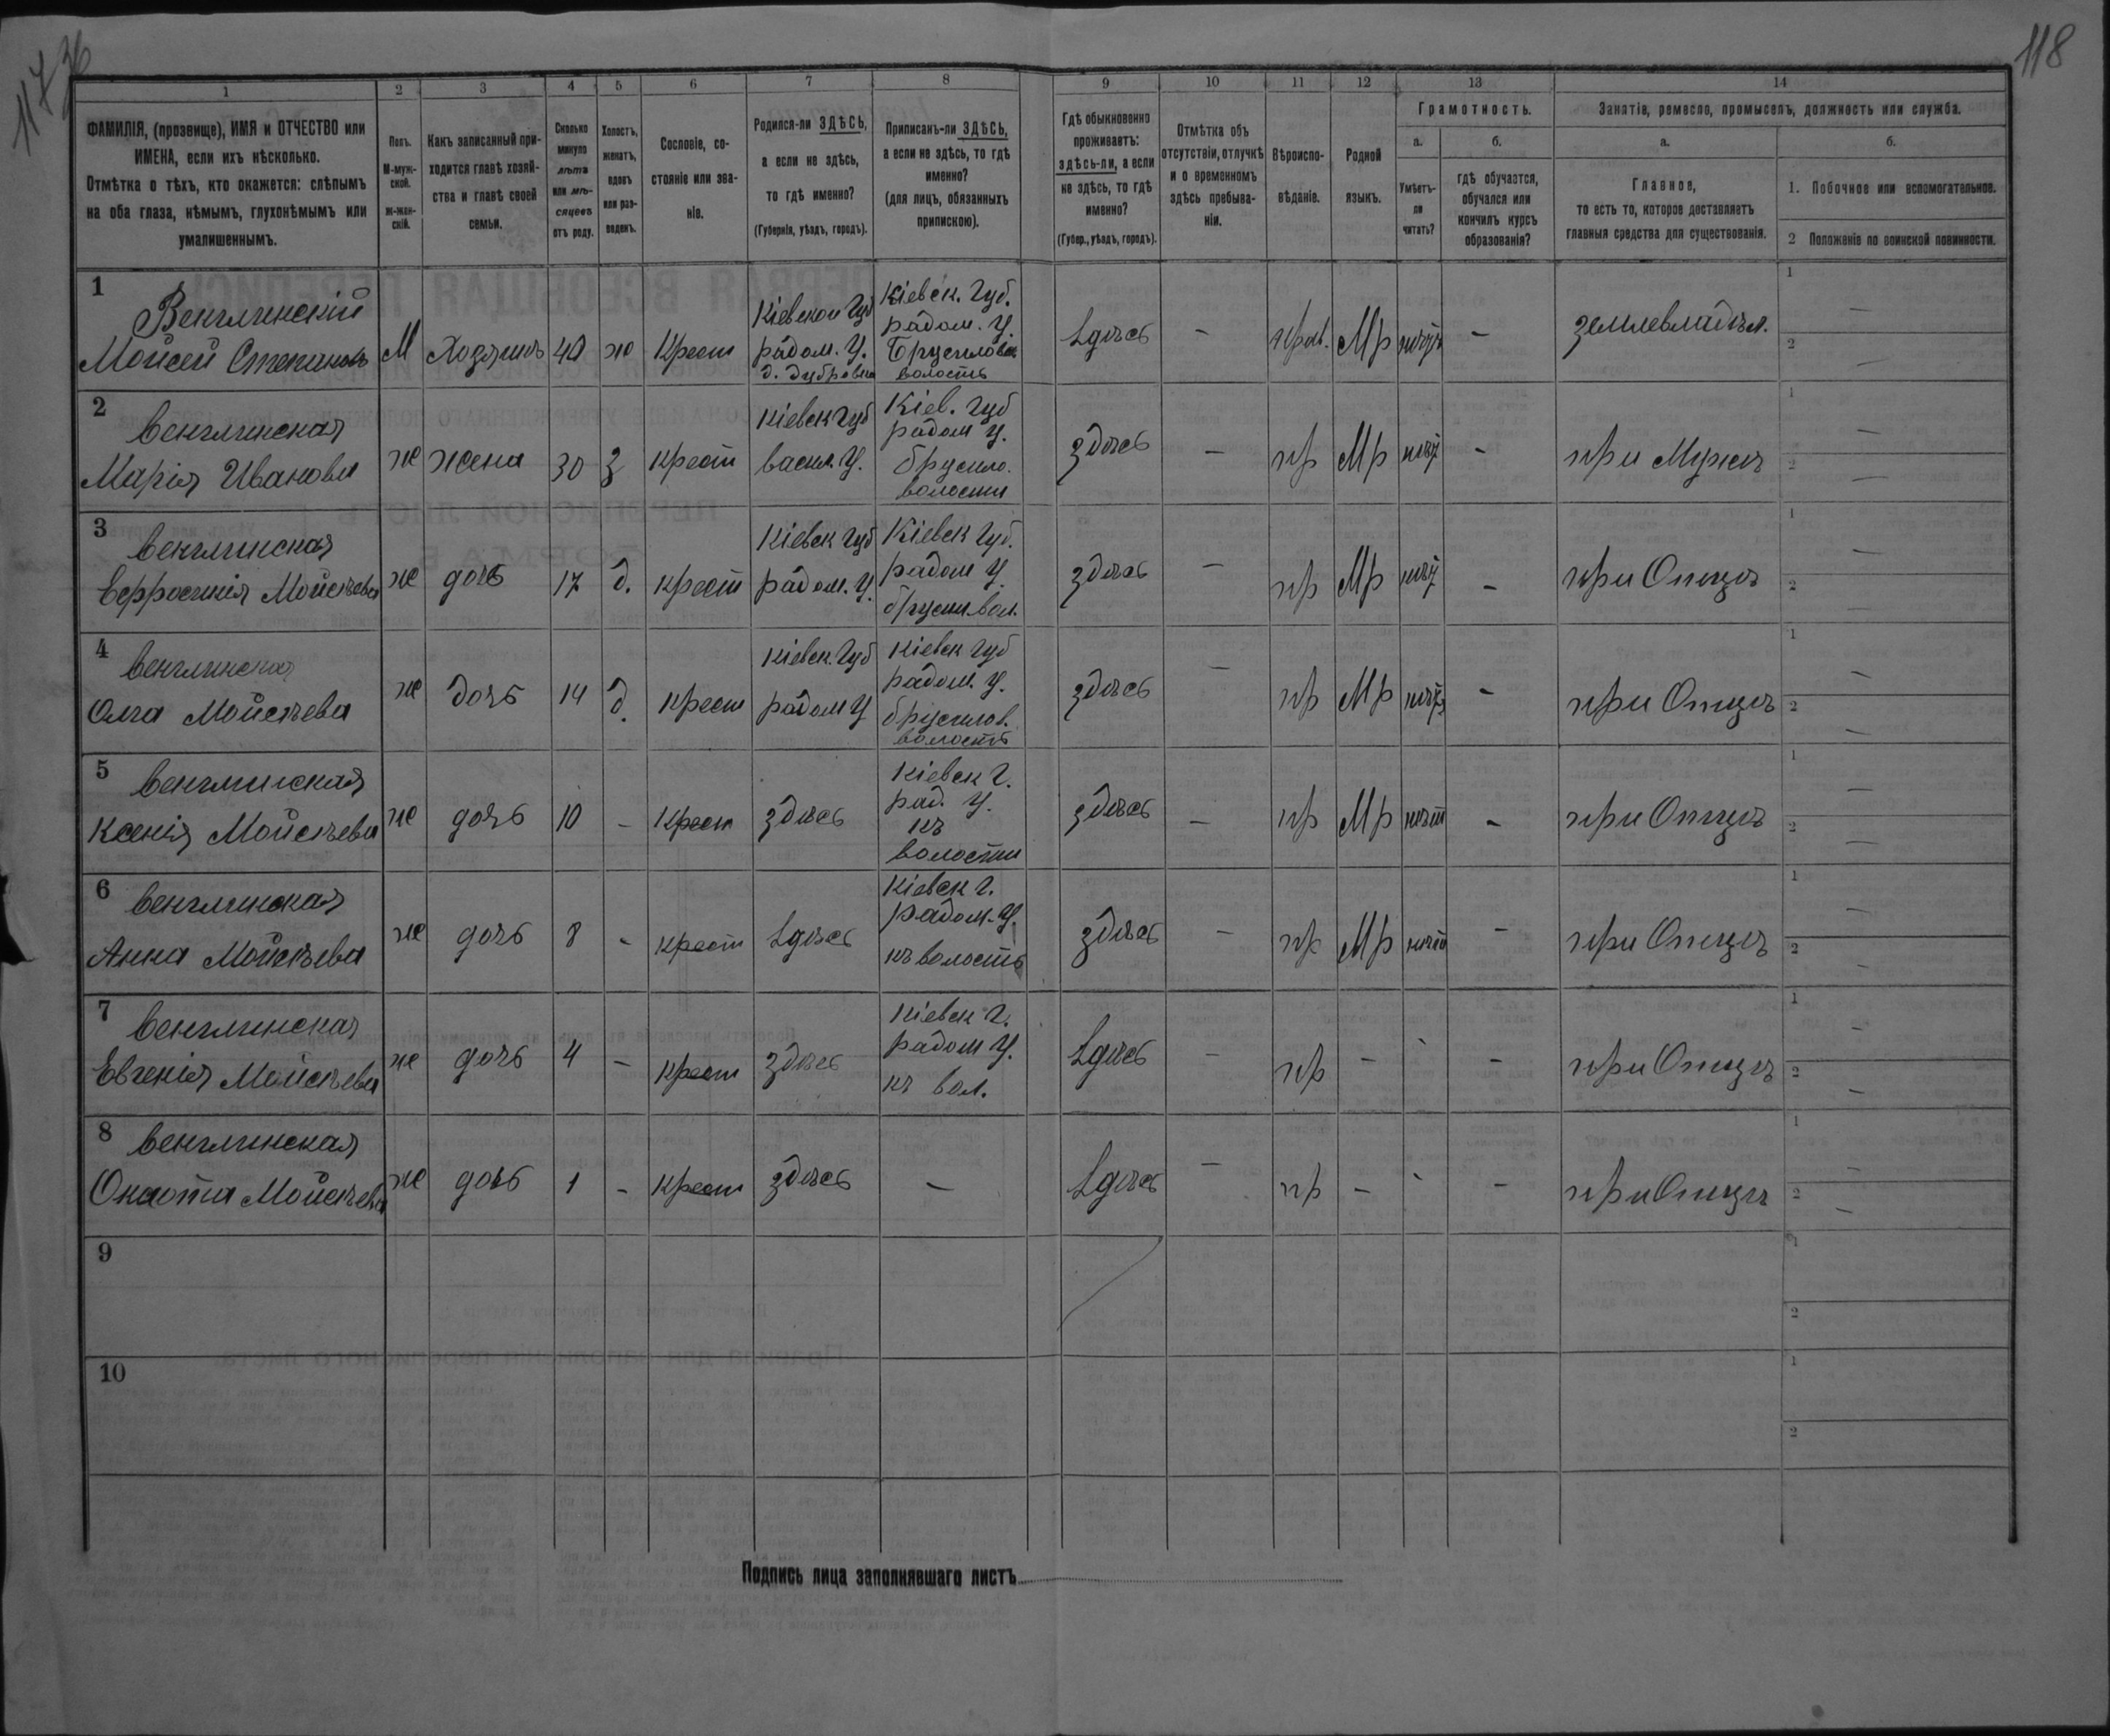 117 36
118
1 2 3 4 5 6 7 8 9 10 11 12 13 14
ФАМИЛІЯ, (прозвище), ИМЯ и ОТЧЕСТВО или
ИМЕНА, если ихъ нѣсколько.
Отмѣтка о тѣхъ, кто окажется: слѣпымъ
на оба глаза, нѣмымъ, глухонѣмымъ или
умалишеннымъ.
Полъ.
М-муж-
ской.
ж-жен-
скій.
Какъ записанный при-
ходится главѣ хозяй-
ства и главѣ своей
семьи.
Сколько
минуло
лѣтъ
или мѣ-
сяцевъ
отъ роду.
Холостъ,
женатъ,
вдовъ
или раз-
веденъ.
Сословіе, со-
стояніе или зва-
ніе.
Родился-ли ЗДѢСЬ,
а если не здѣсь,
то гдѣ именно?
(Губернія, уѣздъ, городъ).
Приписанъ-ли ЗДѢСЬ,
а если не здѣсь, то гдѣ
именно?
(для лицъ, обязанныхъ
припискою).
Гдѣ обыкновенно
проживаетъ:
здѣсь-ли, а если
не здѣсь, то гдѣ
именно?
(Губер., уѣздъ, городъ).
Отмѣтка объ
отсутствіи, отлучкѣ
и о временномъ
здѣсь пребыва-
ніи.
Вѣроиспо-
вѣданіе.
Родной
языкъ.
Грамотность.
а.
Умѣетъ-
ли
читать?
б.
гдѣ обучается,
обучался или
кончилъ курсъ
образованія?
Занятіе, ремесло, промыселъ, должность или служба.
а.
Главное,
то есть то, которое доставляетъ
главныя средства для существованія.
б.
1. Побочное или вспомогательное.
2 Положеніе по воинской повинности.
1
Венглинскій
Мойсей Степановъ
М
Хозяинъ
40
ж
Крест
Кіевской Губ
радом. У.
д. Дубровка
Кіевск. Губ.
радом. У.
Брусилов.
волость
Здѣсь
-
Прав.
Мр
-
землевладѣл.
1 -
2 -
2
Венглинская
Марія Иванова
же
жена
30
З
Крест
Кіевск Губ
Васил. У.
Кіев. Губ
радом У.
брусило.
волости
здѣсь
-
пр
Мр
-
при Мужѣ
1 -
2 -
3
Венглинская
Ефросинія Мойсѣева
же
дочь
17
д.
крест
Кіевск Губ
радом. У.
Кіевск Губ.
радом У.
брусил вол.
здѣсь
-
пр
Мр
-
при Отцѣ
1 -
2 -
4
Венглинская
Олга Мойсѣева
же
дочь
14
д.
Крест
Кіевск. Губ
радом У
Кіевск Губ
радом. У.
брусилов.
волость
здѣсь
-
пр
Мр
-
при Отцѣ
1 -
2 -
5
Венглинская
Ксенія Мойсѣева
же
дочь
10
-
Крест
здѣсь
Кіевск Г.
рад. У.
къ
волости
здѣсь
-
пр
Мр
-
при Отцѣ
1 -
2 -
6
Венглинская
Анна Мойсѣева
же
дочь
8
-
крест
Здѣсь
Кіевск Г.
радом. У.
къ волость
здѣсь
-
пр
Мр
-
при Отцѣ
1 -
2 -
7
Венглинская
Евгенія Мойсѣева
же
дочь
4
-
Крест
здѣсь
Кіевск Г.
радом У.
къ вол.
Здѣсь
-
пр
-
-
-
при Отцѣ
1 -
2 -
8
Венглинская
Мойсѣева
же
дочь
1
-
Крест
здѣсь
-
Здѣсь
-
пр
-
-
-
при Отцѣ
1 -
2 -
9
1
2
10
1
2
Подпись лица заполнявшаго листъ